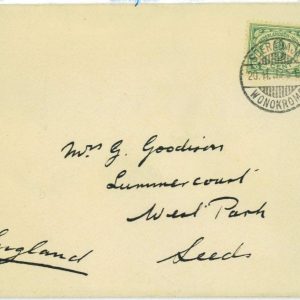 WONOKROMO
Mrs G. Goodison
Summercourt
West Park
Leeds
England